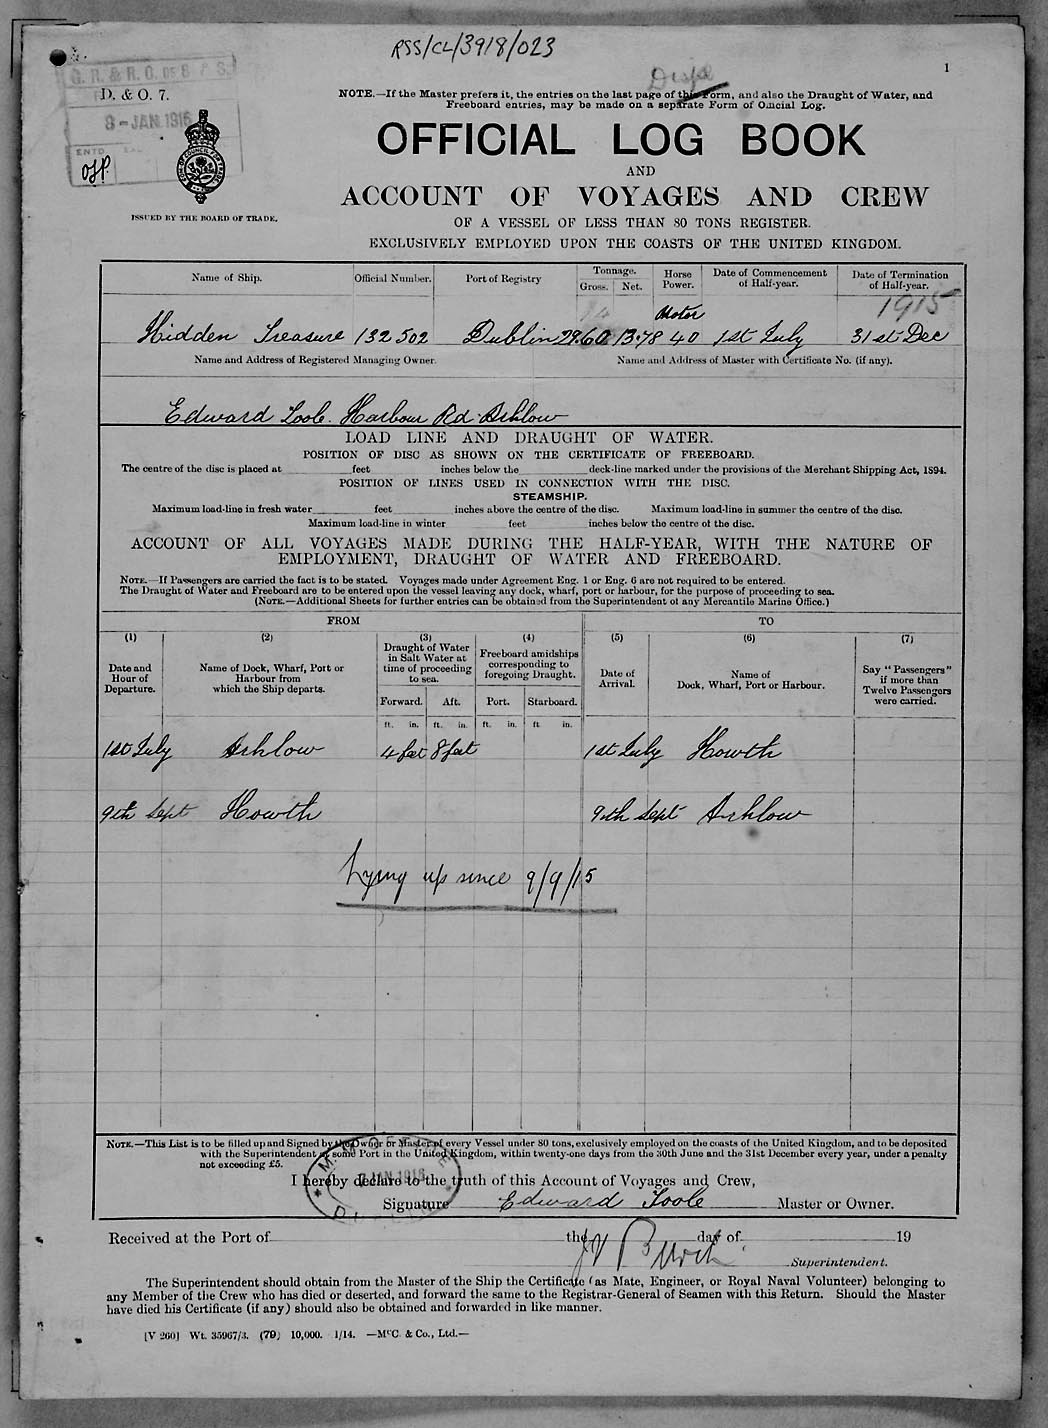 RSS/CL/3918/023
1
G. R. & R. O. OF S & S.
D. & O. 7.
8 - JAN. 1916
ENTD
ISSUED BY THE BOARD OF TRADE.
NOTE.—If the Master prefers it, the entries on the last page of this Form, and also the Draught of Water, and
Freeboard entries, may be made on a separate Form of Official Log.
OFFICIAL LOG BOOK
AND
ACCOUNT OF VOYAGES AND CREW
OF A VESSEL OF LESS THAN 80 TONS REGISTER.
EXCLUSIVELY EMPLOYED UPON THE COASTS OF THE UNITED KINGDOM.
Name of Ship. Official Number. Port of Registry Tonnage. Gross. Net. Horse Power. Date of Commencement of Half-year. Date of Termination of Half-year.
14 Motor 1915
Hidden Treasure 132502 Dublin 29.60 13.78 40 1st July 31st Dec
Name and Address of Registered Managing Owner. Name and Address of Master with Certificate No. (if any).
Edward Toole. Harbour Rd. Arklow
LOAD LINE AND DRAUGHT OF WATER.
POSITION OF DISC AS SHOWN ON THE CERTIFICATE OF FREEBOARD.
The centre of the disc is placed at feet inches below the deck-line marked under the provisions of the Merchant Shipping Act, 1894.
POSITION OF LINES USED IN CONNECTION WITH THE DISC.
STEAMSHIP.
Maximum load-line in fresh water feet inches above the centre of the disc. Maximum load-line in summer the centre of the disc.
Maximum load-line in winter feet inches below the centre of the disc.
ACCOUNT OF ALL VOYAGES MADE DURING THE HALF-YEAR, WITH THE NATURE OF
EMPLOYMENT, DRAUGHT OF WATER AND FREEBOARD.
NOTE.—If Passengers are carried the fact is to be stated. Voyages made under Agreement Eng. 1 or Eng. 6 are not required to be entered.
The Draught of Water and Freeboard are to be entered upon the vessel leaving any dock, wharf, port or harbour, for the purpose of proceeding to sea.
(NOTE.—Additional Sheets for further entries can be obtained from the Superintendent of any Mercantile Marine Office.)
FROM TO
(1) (2) (3) (4) (5) (6) (7)
Date and Hour of Departure. Name of Dock, Wharf, Port or Harbour from which the Ship departs. Draught of Water in Salt Water at time of proceeding to sea. Freeboard amidships corresponding to foregoing Draught. Date of Arrival. Name of Dock, Wharf, Port or Harbour. Say "Passengers" if more than Twelve Passengers were carried.
Forward. Aft. Port. Starboard.
ft. in. ft. in. ft. in. ft. in.
1st July Arklow 4 feet 8 feet 1st July Howth
9th Sept Howth 9th Sept Arklow
Lying up since 9/9/15
NOTE.—This List is to be filled up and Signed by the Owner or Master of every Vessel under 80 tons, exclusively employed on the coasts of the United Kingdom, and to be deposited
with the Superintendent of some Port in the United Kingdom, within twenty-one days from the 30th June and the 31st December every year, under a penalty
not exceeding £5.
JAN 1916
I hereby declare to the truth of this Account of Voyages and Crew,
Signature Edward Toole Master or Owner.
Received at the Port of the day of 19
Superintendent.
The Superintendent should obtain from the Master of the Ship the Certificate (as Mate, Engineer, or Royal Naval Volunteer) belonging to
any Member of the Crew who has died or deserted, and forward the same to the Registrar-General of Seamen with this Return. Should the Master
have died his Certificate (if any) should also be obtained and forwarded in like manner.
[V 260] Wt. 35967/3. (79) 10,000. 1/14. —McC. & Co., Ltd.—